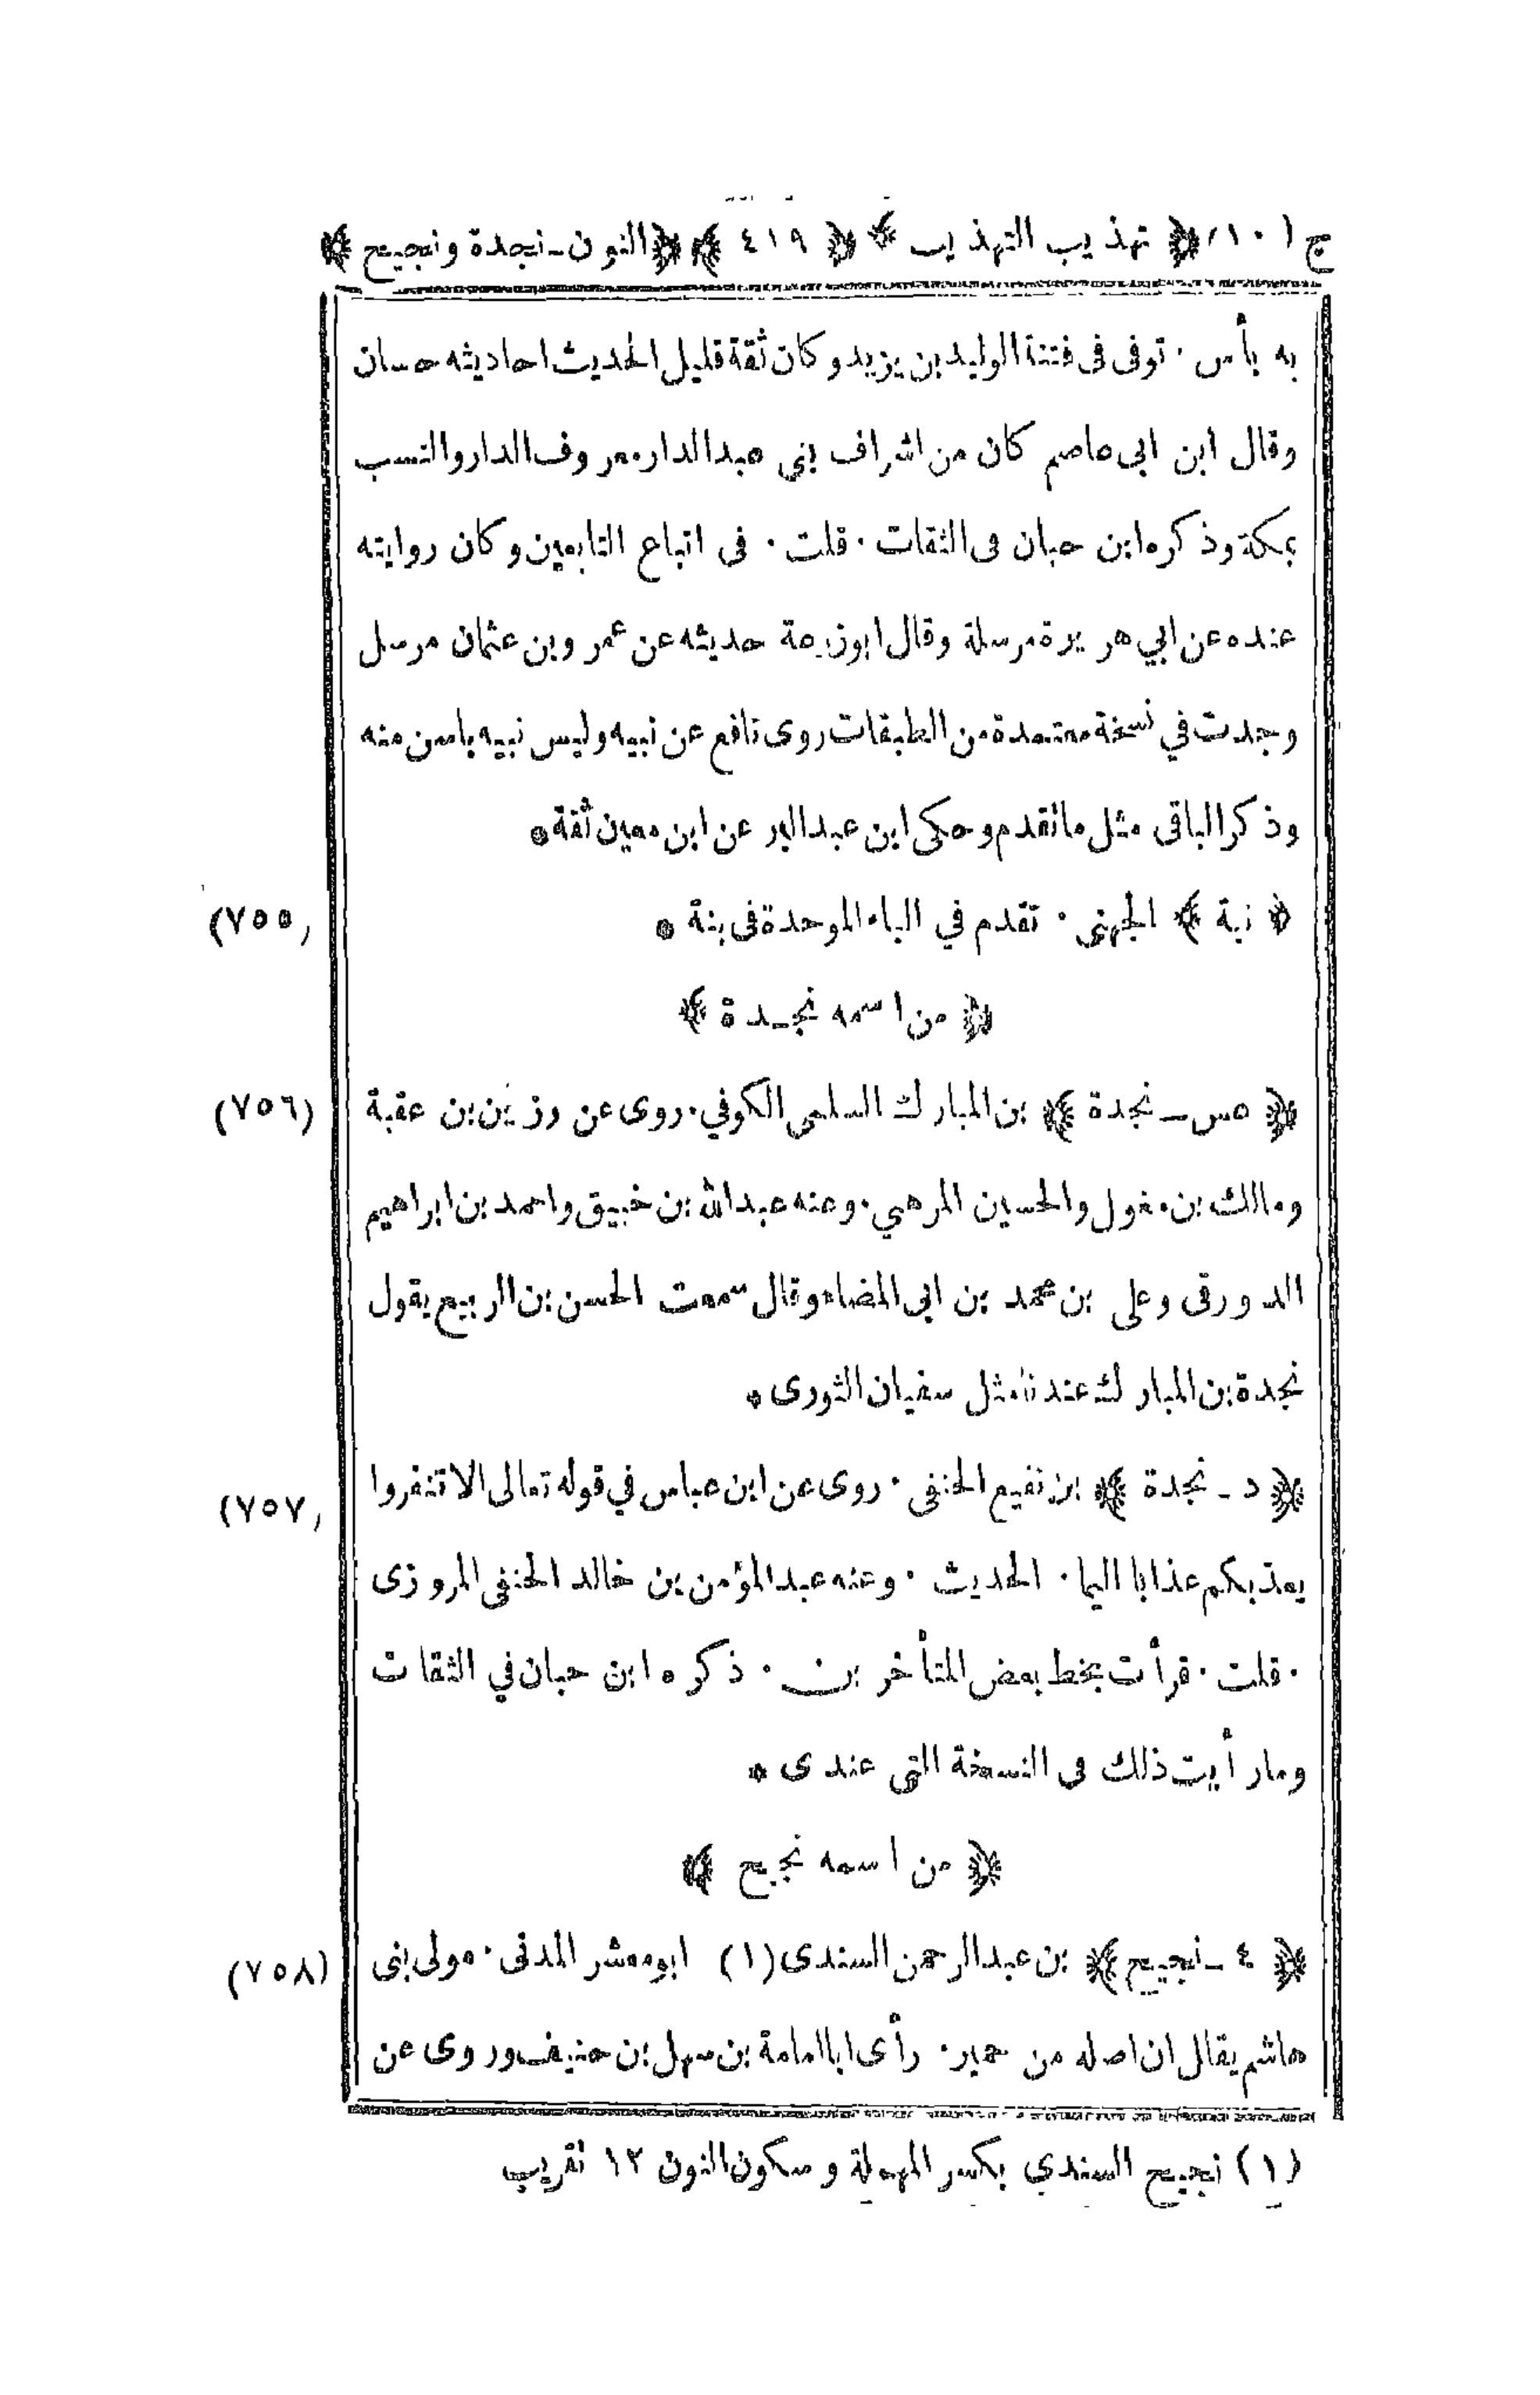 ج (١٠) ﴿ تهذيب التهذيب ﴾ ﴿ ٤١٩ ﴾ ﴿ النون ـ نجدة ونجيح ﴾
به بأس ٠ توفى فى فتنة الوليد بن يزيد وكان ثقة قليل الحديث احاديثه حسان
وقال ابن ابى عاصم كان من اشراف بني عبد الدار معروف الدار والنسب
بمكة وذكره ابن حبان فى الثقات ٠ قلت ٠ فى اتباع التابعين وكان روايته
عنده عن ابي هريرة مرسلة وقال ابوزرعة حديثه عن عمرو بن عثمان مرسل
وجدت في نسخة معتمدة من الطبقات روى نافع عن نبيه وليس نبيه باسن منه
وذكر الباقى مثل ما تقدم وحكى ابن عبد البر عن ابن معين ثقة *
﴿ نبة ﴾ الجهني ٠ تقدم في الباء الموحدة فى بنة *
(٧٥٥)
﴿ من اسمه نجدة ﴾
﴿ عس ـ نجدة ﴾ بن المبارك السلمى الكوفي ٠ روى عن رزين بن عقبة
(٧٥٦)
ومالك بن مغول والحسين المرهبي ٠ وعنه عبد الله بن خبيق واحمد بن ابراهيم
الدورقى وعلى بن محمد بن ابى المضاء وقال سمعت الحسن بن الربيع يقول
نجدة بن المبارك عندنا مثل سفيان الثورى *
﴿ د ـ نجدة ﴾ بن نفيع الحنفى ٠ روى عن ابن عباس في قوله تعالى الا تنفروا
(٧٥٧)
يعذبكم عذابا اليما ٠ الحديث ٠ وعنه عبد المؤمن بن خالد الحنفى المروزى
٠ قلت ٠ قرأت بخط بعض المتأخرين ٠ ذكره ابن حبان في الثقات
وما رأيت ذلك فى النسخة التى عندى *
﴿ من اسمه نجيح ﴾
﴿ ٤ ـ نجيح ﴾ بن عبد الرحمن السندى (١) ابومعشر المدنى ٠ مولى بنى
(٧٥٨)
هاشم يقال ان اصله من حمير ٠ رأى ابا امامة بن سهل بن حنيف وروى عن
(١) نجيح السندي بكسر المهملة وسكون النون ١٢ تقريب